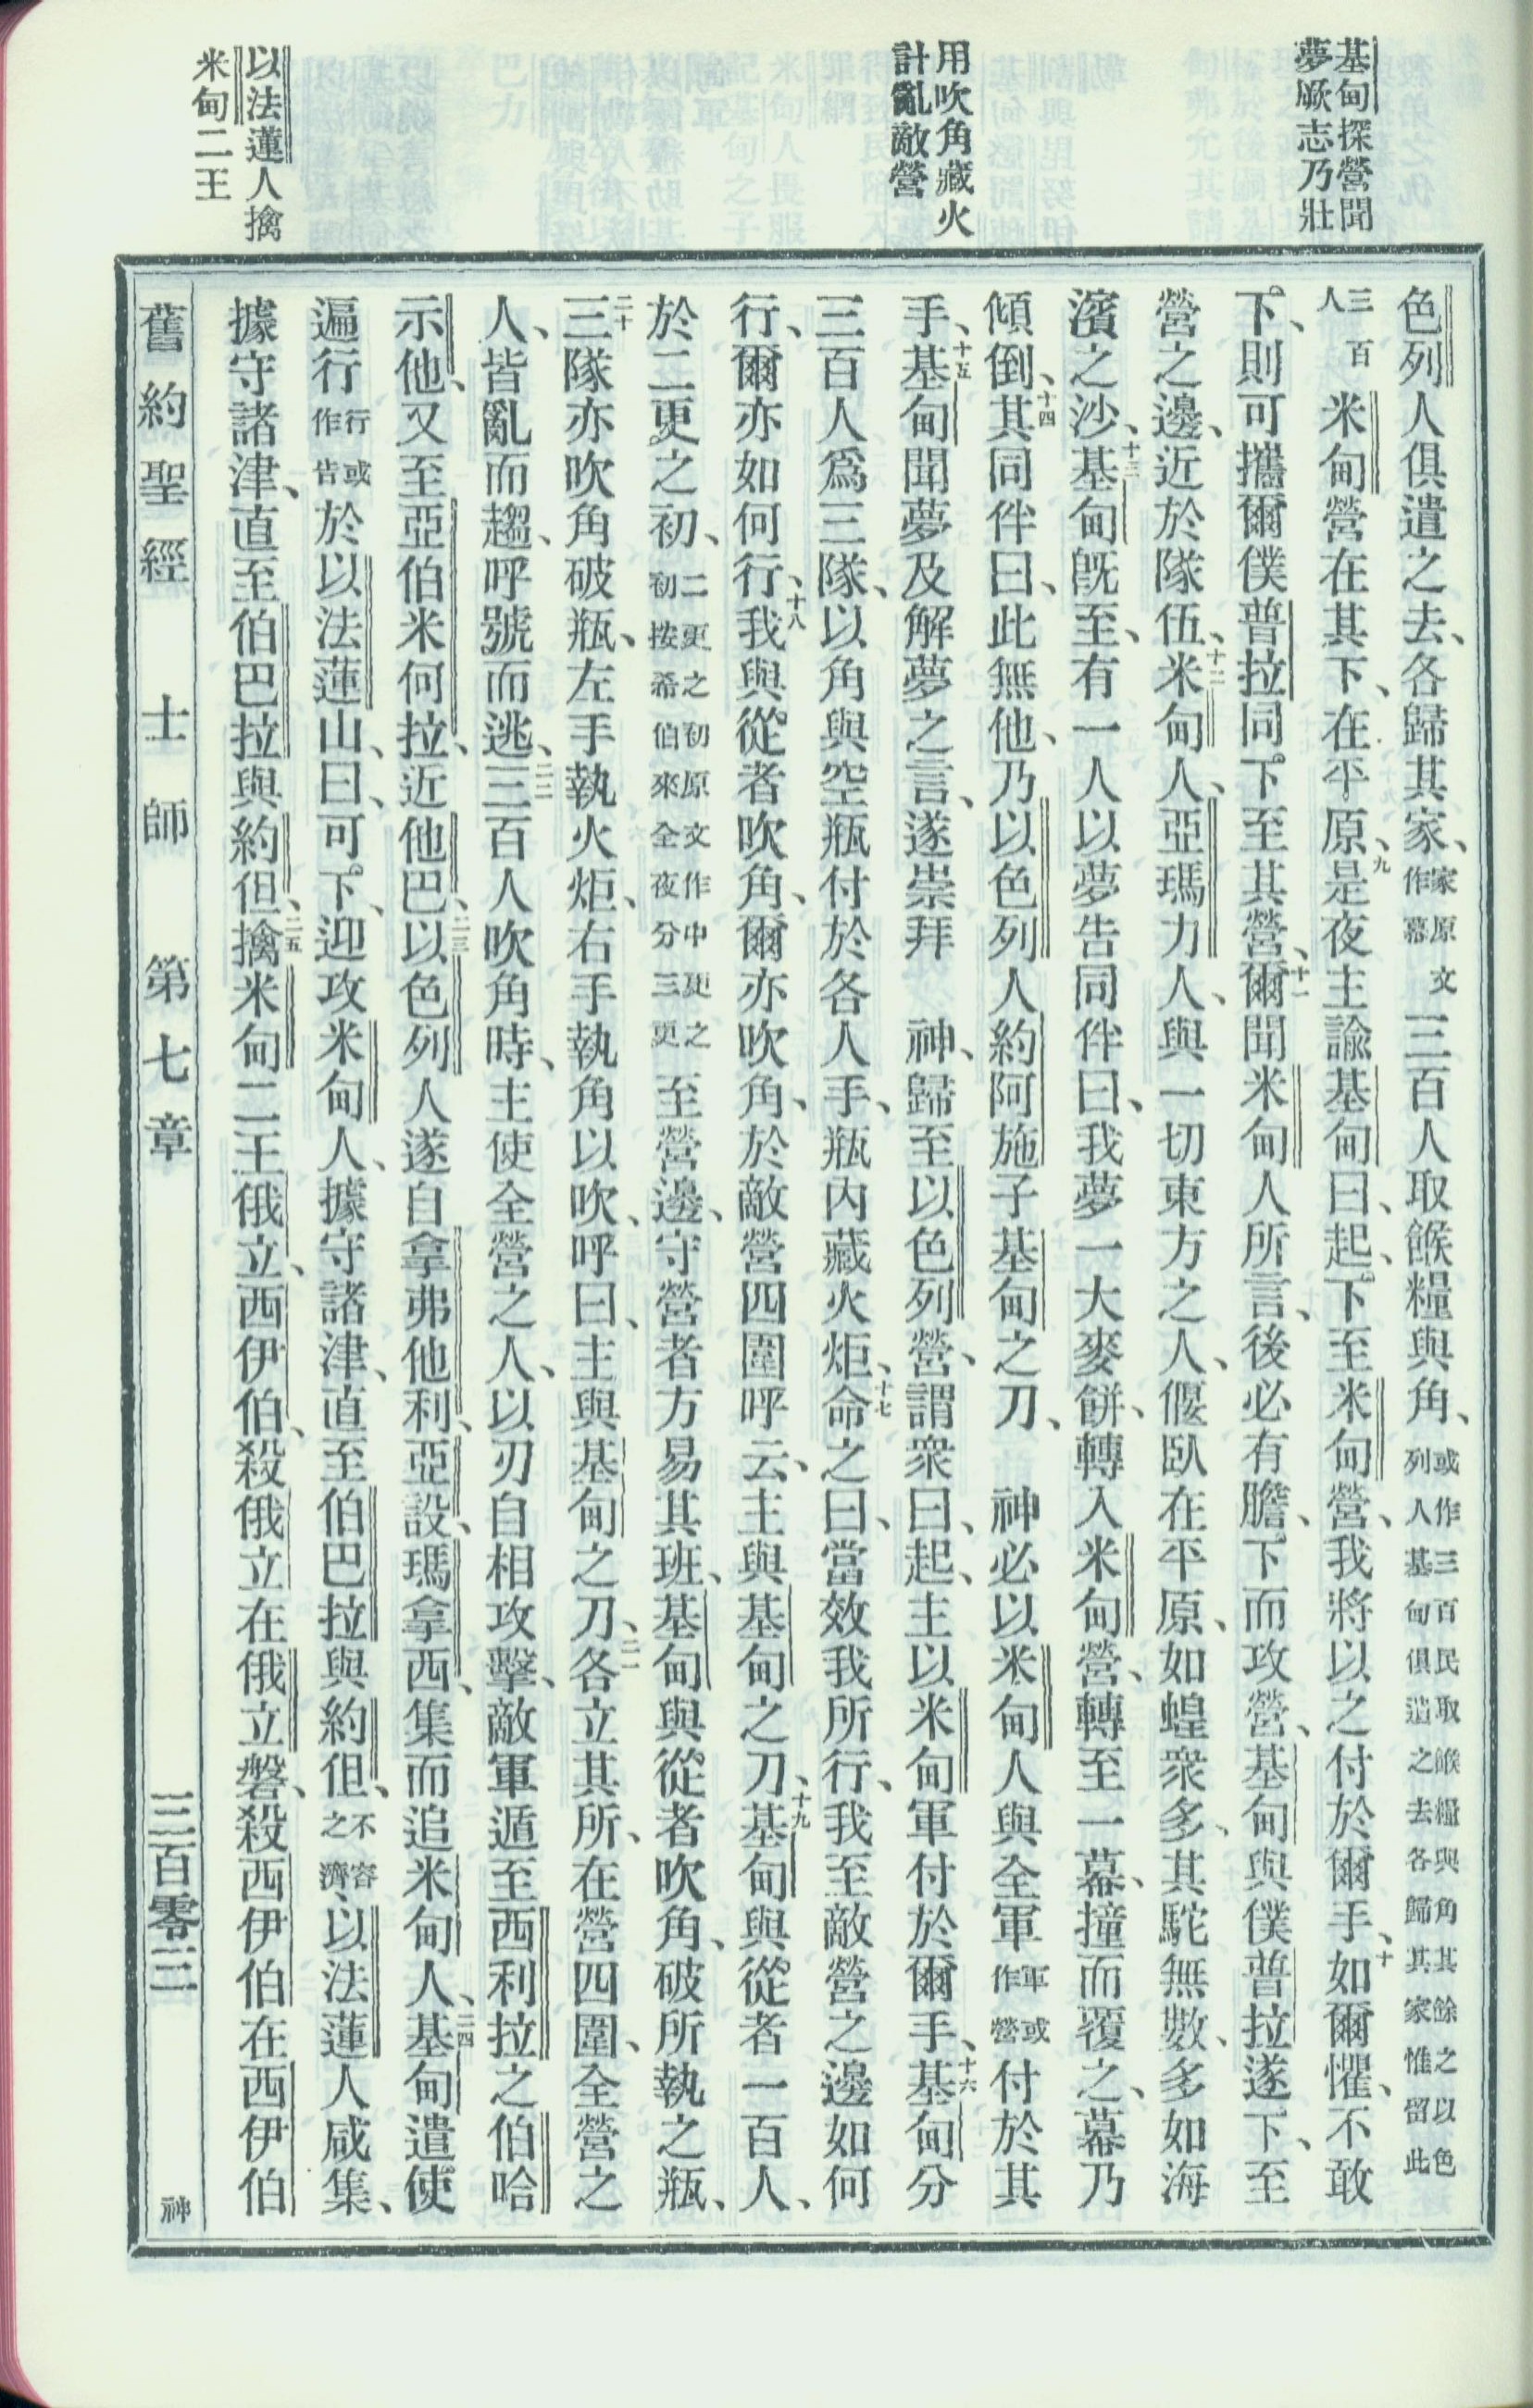 基甸探營聞
夢厥志乃壯
用吹角藏火
計亂敵營
以法蓮人擒
米甸二王
色列人俱遣之去、各歸其家、家原文作幕三百人取餱糧與角、或作三百民取餱糧與角其餘之以色列人基甸俱遣之去各歸其家惟留此
三百人米甸營在其下、在平原、九是夜主諭基甸曰、起、下至米甸營、我將以之付於爾手、十如爾懼、不敢
下、則可攜爾僕普拉同下至其營、十一爾聞米甸人所言、後必有膽、下而攻營、基甸與僕普拉遂下、至
營之邊、近於隊伍、十二米甸人、亞瑪力人、與一切東方之人、偃臥在平原、如蝗衆多、其駝無數、多如海
濱之沙、十三基甸旣至、有一人以夢告同伴曰、我夢一大麥餅、轉入米甸營、轉至一幕、撞而覆之、幕乃
傾倒、十四其同伴曰、此無他、乃以色列人約阿施子基甸之刀、神必以米甸人與全軍軍或作營付於其
手、十五基甸聞夢及解夢之言、遂崇拜　神、歸至以色列營、謂衆曰、起、主以米甸軍付於爾手、十六基甸分
三百人爲三隊、以角與空瓶付於各人手、瓶內藏火炬、十七命之曰、當效我所行、我至敵營之邊如何
行、爾亦如何行、十八我與從者吹角、爾亦吹角、於敵營四圍呼云、主與基甸之刀、十九基甸與從者一百人、
於二更之初、二更之初原文作中更之初按希伯來全夜分三更至營邊、守營者方易其班、基甸與從者吹角、破所執之瓶、
二十三隊亦吹角破瓶、左手執火炬、右手執角以吹、呼曰、主與基甸之刀、二一各立其所、在營四圍、全營之
人、皆亂而趨、呼號而逃、二二三百人吹角時、主使全營之人、以刃自相攻擊、敵軍遁至西利拉之伯哈
示他、又至亞伯米何拉、近他巴、二三以色列人遂自拿弗他利、亞設、瑪拿西、集而追米甸人、二四基甸遣使
遍行行或作告於以法蓮山、曰、可下、迎攻米甸人、據守諸津、直至伯巴拉與約但、不容之濟、以法蓮人咸集、
據守諸津、直至伯巴拉與約但、二五擒米甸二王俄立、西伊伯、殺俄立在俄立磐、殺西伊伯在西伊伯
舊約聖經　士師　第七章　三百零三　神